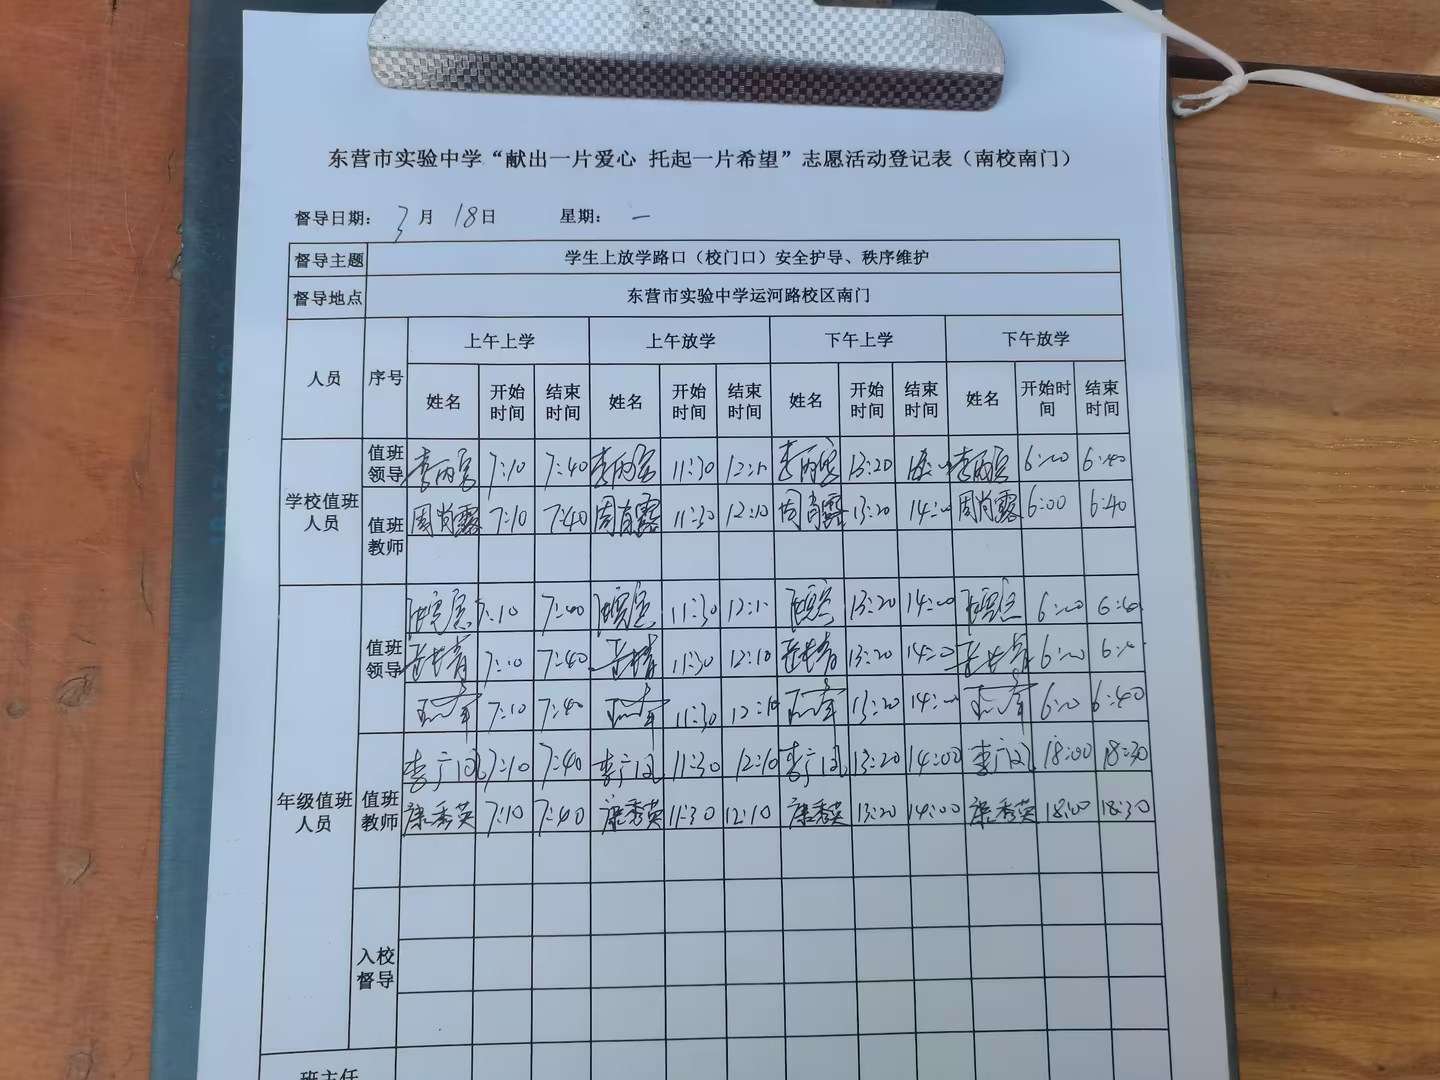 东营市实验中学“献出一片爱心 托起一片希望”志愿活动登记表（南校南门）
督导日期： 3 月 18 日 星期： 一
督导主题 学生上放学路口（校门口）安全护导、秩序维护
督导地点 东营市实验中学运河路校区南门
人员 序号 上午上学 上午放学 下午上学 下午放学
姓名 开始时间 结束时间 姓名 开始时间 结束时间 姓名 开始时间 结束时间 姓名 开始时间 结束时间
学校值班人员 值班领导 7:10 7:40 11:30 12:10 13:20 6:00 6:40
值班教师 周肖露 7:10 7:40 周肖露 11:30 12:10 周肖露 13:20 14:00 周肖露 6:00 6:40
年级值班人员 值班领导 7:10 7:40 11:30 12:10 13:20 14:00 6:00 6:40
7:10 7:40 11:30 12:10 13:20 14:00 6:00
7:10 7:40 11:30 12:10 13:20 14:00 6:00 6:40
值班教师 7:10 7:40 11:30 12:10 13:20 14:00 18:00 18:30
康秀英 7:10 7:40 康秀英 11:30 12:10 康秀英 13:20 14:00 康秀英 18:00 18:30
入校督导
班主任